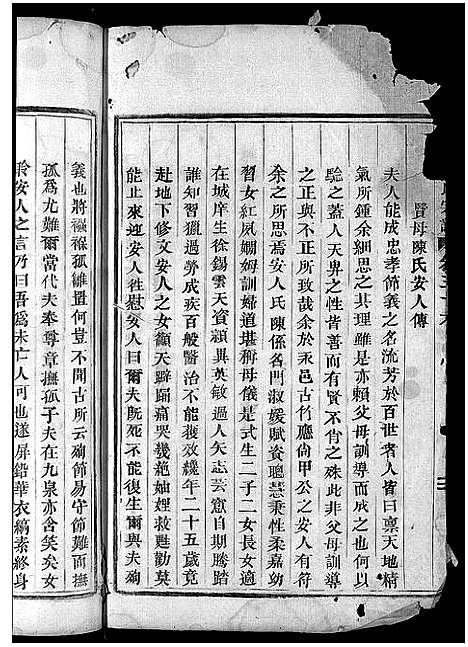 賢母陳氏安人傳
夫人能成忠孝節義之名流芳於百世者人皆曰禀天地精
氣所鍾余細思之其理雖是亦賴父母訓導而成之也何以
騐之蓋人天界之性皆善而有賢不肖之殊此非父母訓導
之正與不正所致哉余於永邑古竹廳尙甲公之安人有符
余之所思焉安人氏陳係名門淑媛賦資聰慧秉性柔嘉幼
習女紅夙嫻姆訓婦道堪稱母儀是式生二子二女長女適
在城庠生徐錫雲天姿穎異英敏過人矢志芸窻自期騰踏
誰知習獵過勞成疾百般醫治不能獲纔年二十五歲竟
赴地下修文安人之女籲天躃踴痛哭幾絶妯娌救甦勸莫
能止來迎安人徃慰安人曰爾夫旣死不能復生爾與夫殉
義也將襁褓孤雛置何豈不聞古所云殉節易守節難而撫
孤爲尤難爾當代夫奉尊章撫孤子夫在九泉亦含笑矣女
聆安人之言乃曰吾爲未亡人可也遂屏鉛華衣縞素終身